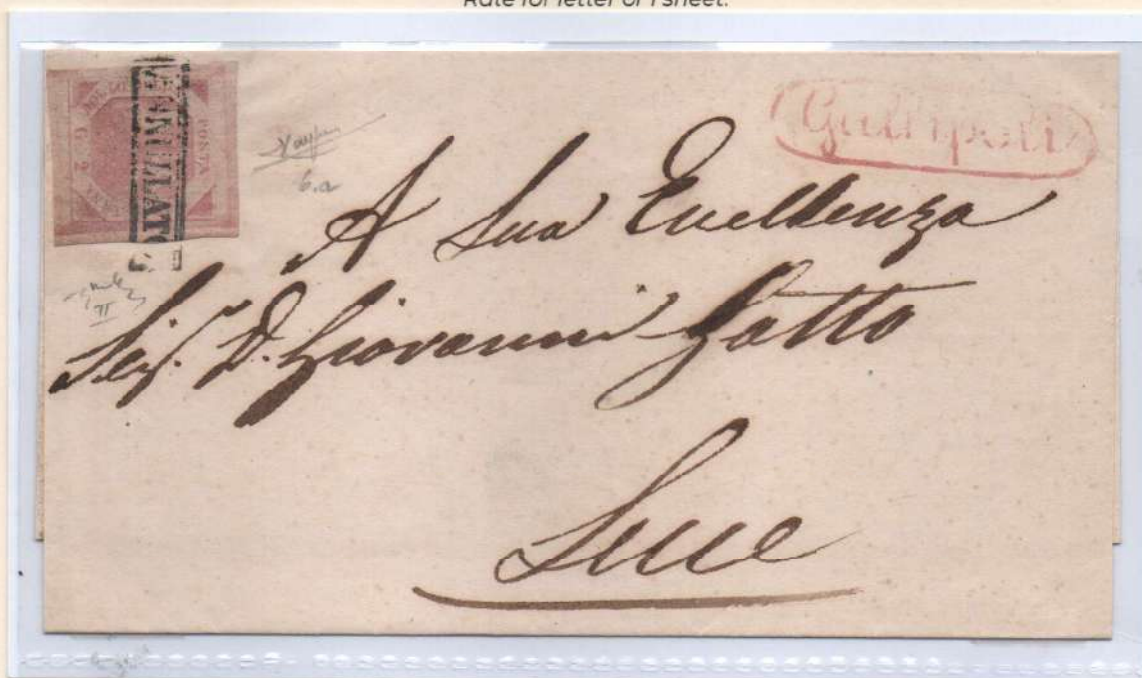 Rate for letter of 1 sheet.
ANNULLATO
POSTA
G. 2
Gallipoli
6.a
A Sua Eccellenza
Sig.r D. Giovanni Gatto
Lecce